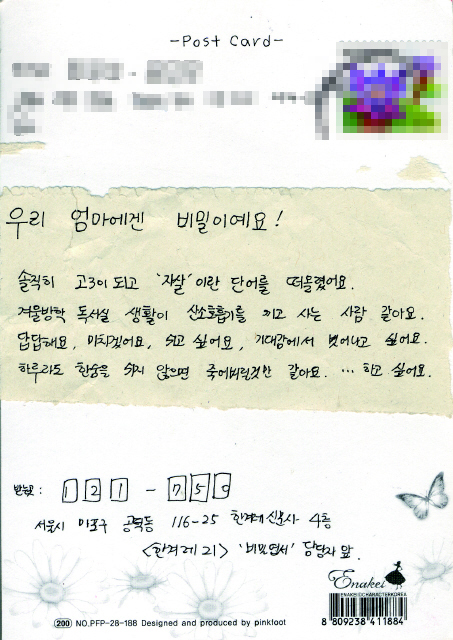 -Post Card-
우리 엄마에겐 비밀이예요!
솔직히 고3이 되고 '자살'이란 단어를 떠올렸어요.
겨울방학 독서실 생활이 산소호흡기를 끼고 사는 사람 같아요.
답답해요, 미치겠어요, 쉬고 싶어요, 기대감에서 벗어나고 싶어요.
하루라도 한숨을 쉬지 않으면 죽어버릴것만 같아요. … 하고 싶어요.
받는곳: 121-750
서울시 마포구 공덕동 116-25 한겨레신문사 4층
<한겨레21> '비밀엽서' 담당자 앞.
Enakei
ENAKEI CHARACTER KOREA
8 809238 411884
200 NO.PFP-28-188 Designed and produced by pinkfoot